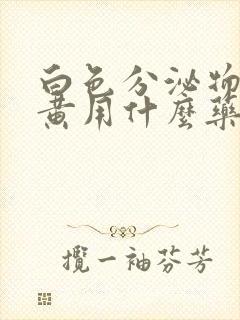 白色分泌物
黄用什麼藥
攬一袖芬芳